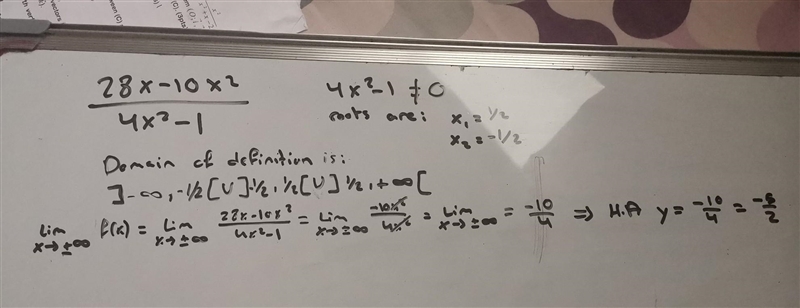 28x-10x²
4x²-1
4x²-1 ≠ 0
roots are: x₁ = 1/2
x₂ = -1/2
Domain of definition is:
]-∞, -1/2[ U ]-1/2, 1/2[ U ]1/2, +∞[
Lim x→±∞ f(x) = Lim x→±∞ 28x-10x²/4x²-1 = Lim x→±∞ -10x²/4x² = Lim x→±∞ = -10/4 ⇒ H.A y = -10/4 = -5/2